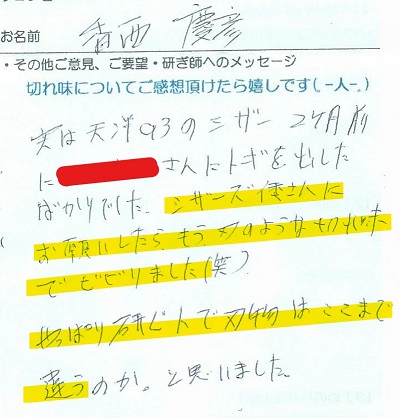 お名前 香西 慶彦
・その他ご意見、ご要望・研ぎ師へのメッセージ
切れ味についてご感想頂けたら嬉しです(-人-。)
実は天洋93のシザー 2ケ月前
に さんにトギを出した
ばかりでした。シザーズ優さんに
お願いしたら、もう刃のような切れ味
でビビリました(笑)
やっぱり研ぐ人で刃物はここまで
違うのか。と思いました。